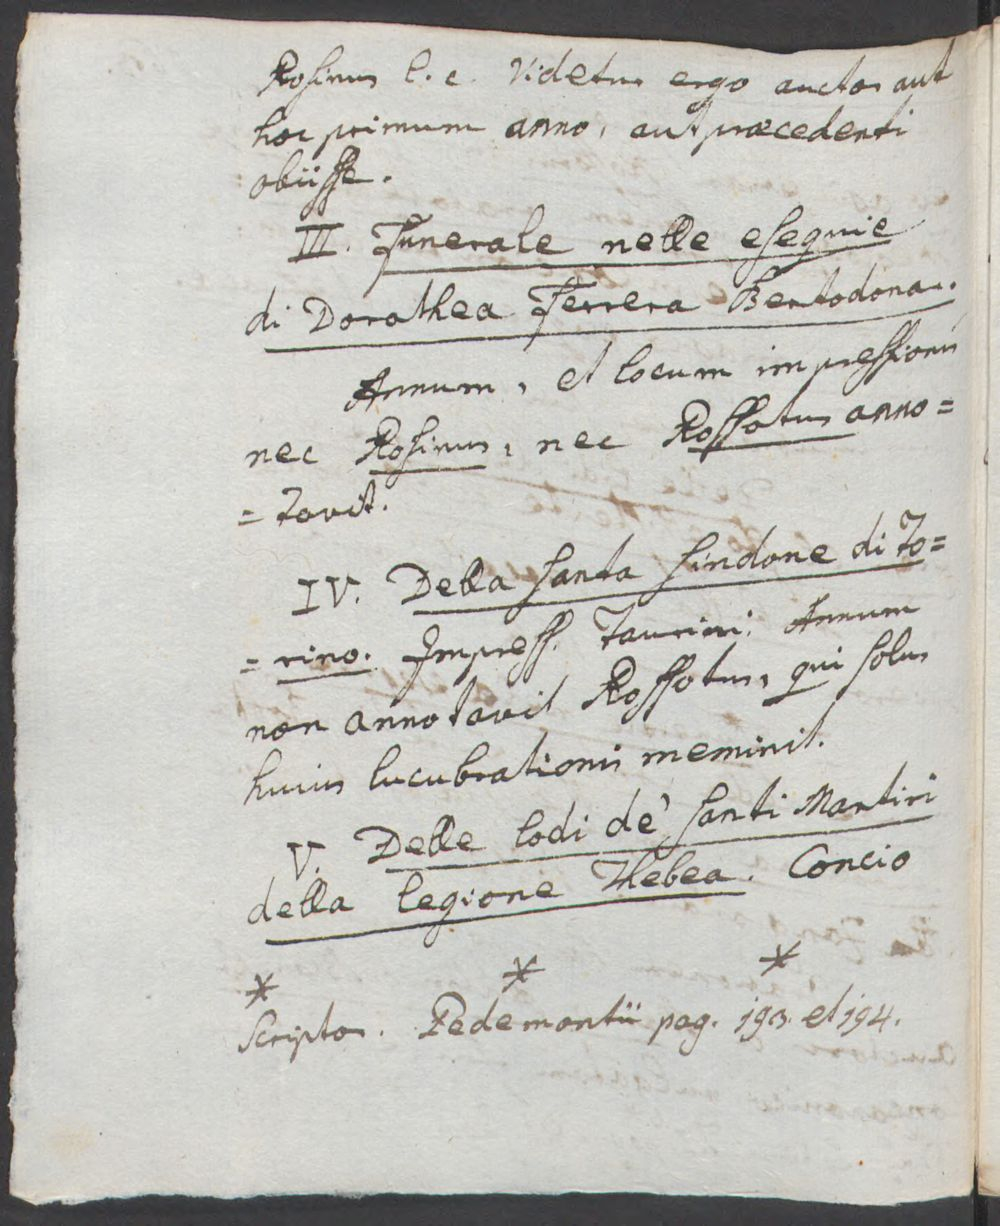 Rosinus l. c. Videtur ergo auctor aut
hoc primum anno, aut præcedenti
obiisse.
III. Funerale nelle esequie
di Dorothea Ferrera Bertodona.
Annum, et locum impressionis
nec Rosinus, nec Rossotus anno=
=tavit.
IV. Della santa sindone di To=
=rino. Impress. Taurini. Annum
non annotavit Rossotus, qui solus
huius lucubrationis meminit.
V. Delle lodi de' santi Martiri
della legione Thebea. Concio
* * *
Scriptor. Pedemontii pag. 193. et 194.